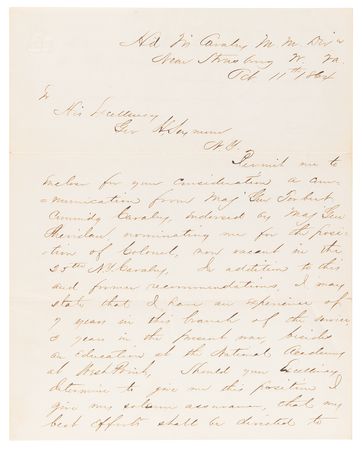 Hd Qrs Cavalry M. M. Div'n
Near Strasburg W. Va.
Oct 11th 1864
To
His Excellency
Gov H Seymour
N.Y.
Permit me to
enclose for your consideration a com-
-munication from Maj Gen Torbert
Commdg Cavalry endorsed by Maj Gen
Sheridan nominating me for the posi-
-tion of Colonel, now vacant in the
25th N.Y. Cavalry. In addition to this
and former recommendations, I may
state that I have an experience of
7 years in this branch of the service
3 years in the present war, besides
an Education at the National Academy
at West Point, Should your Excellency
determine to give me this position I
give my solemn assurance, that my
best efforts shall be directed to